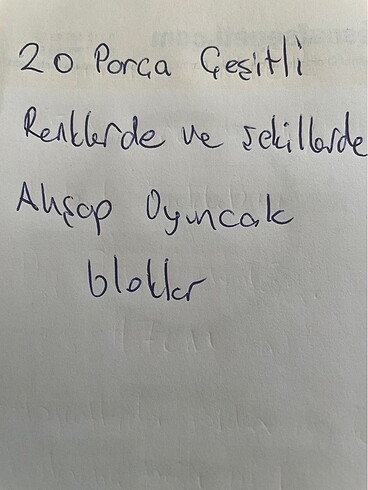 20 Parça Çeşitli
Renklerde ve şekillerde
Ahşap Oyuncak
bloklar